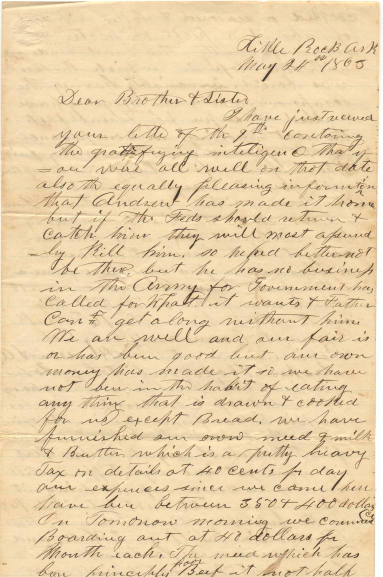 Little Rock Ark
May 24th 1863
Dear Brother & Sister
I have just received
your lette of the 9th contaning
the gratifying inteligence that y=
=ou was all well on that date
also the equally pleasing information
that Andrew has made it home
but if the Feds should return &
catch him they will most assured
=ly Kill him. so he had better not
be ther, but he has no business
in the Army for Government has
called for what it wants & Father
Can't get along without him
We are well and our fair is
or has ben good but our own
money has made it so we have
not ben in the habit of eating
any thing that is drawn & cooked
for us except Bread. we have
furnished our own meed & milk
& Butter which is a pretty heavy
Tax on details at 40 cents pr day
our expences since we came here
have ben between 350 & 400 dollars
On Tomorrow morning we commence
Boarding out at 40 dollars pr
Month each. The meed which has
ben principly poor Beef is not half